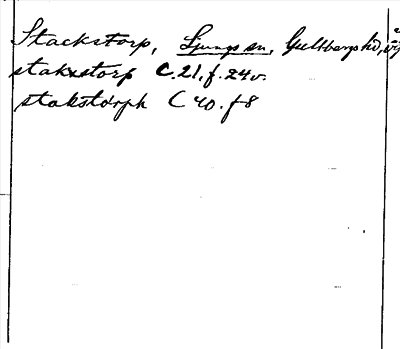 Stackstorp, Ljungs sn, Gullbergs hd, Ög
stakxstorp C.21, f. 24v.
stakstorph C 40. f 8